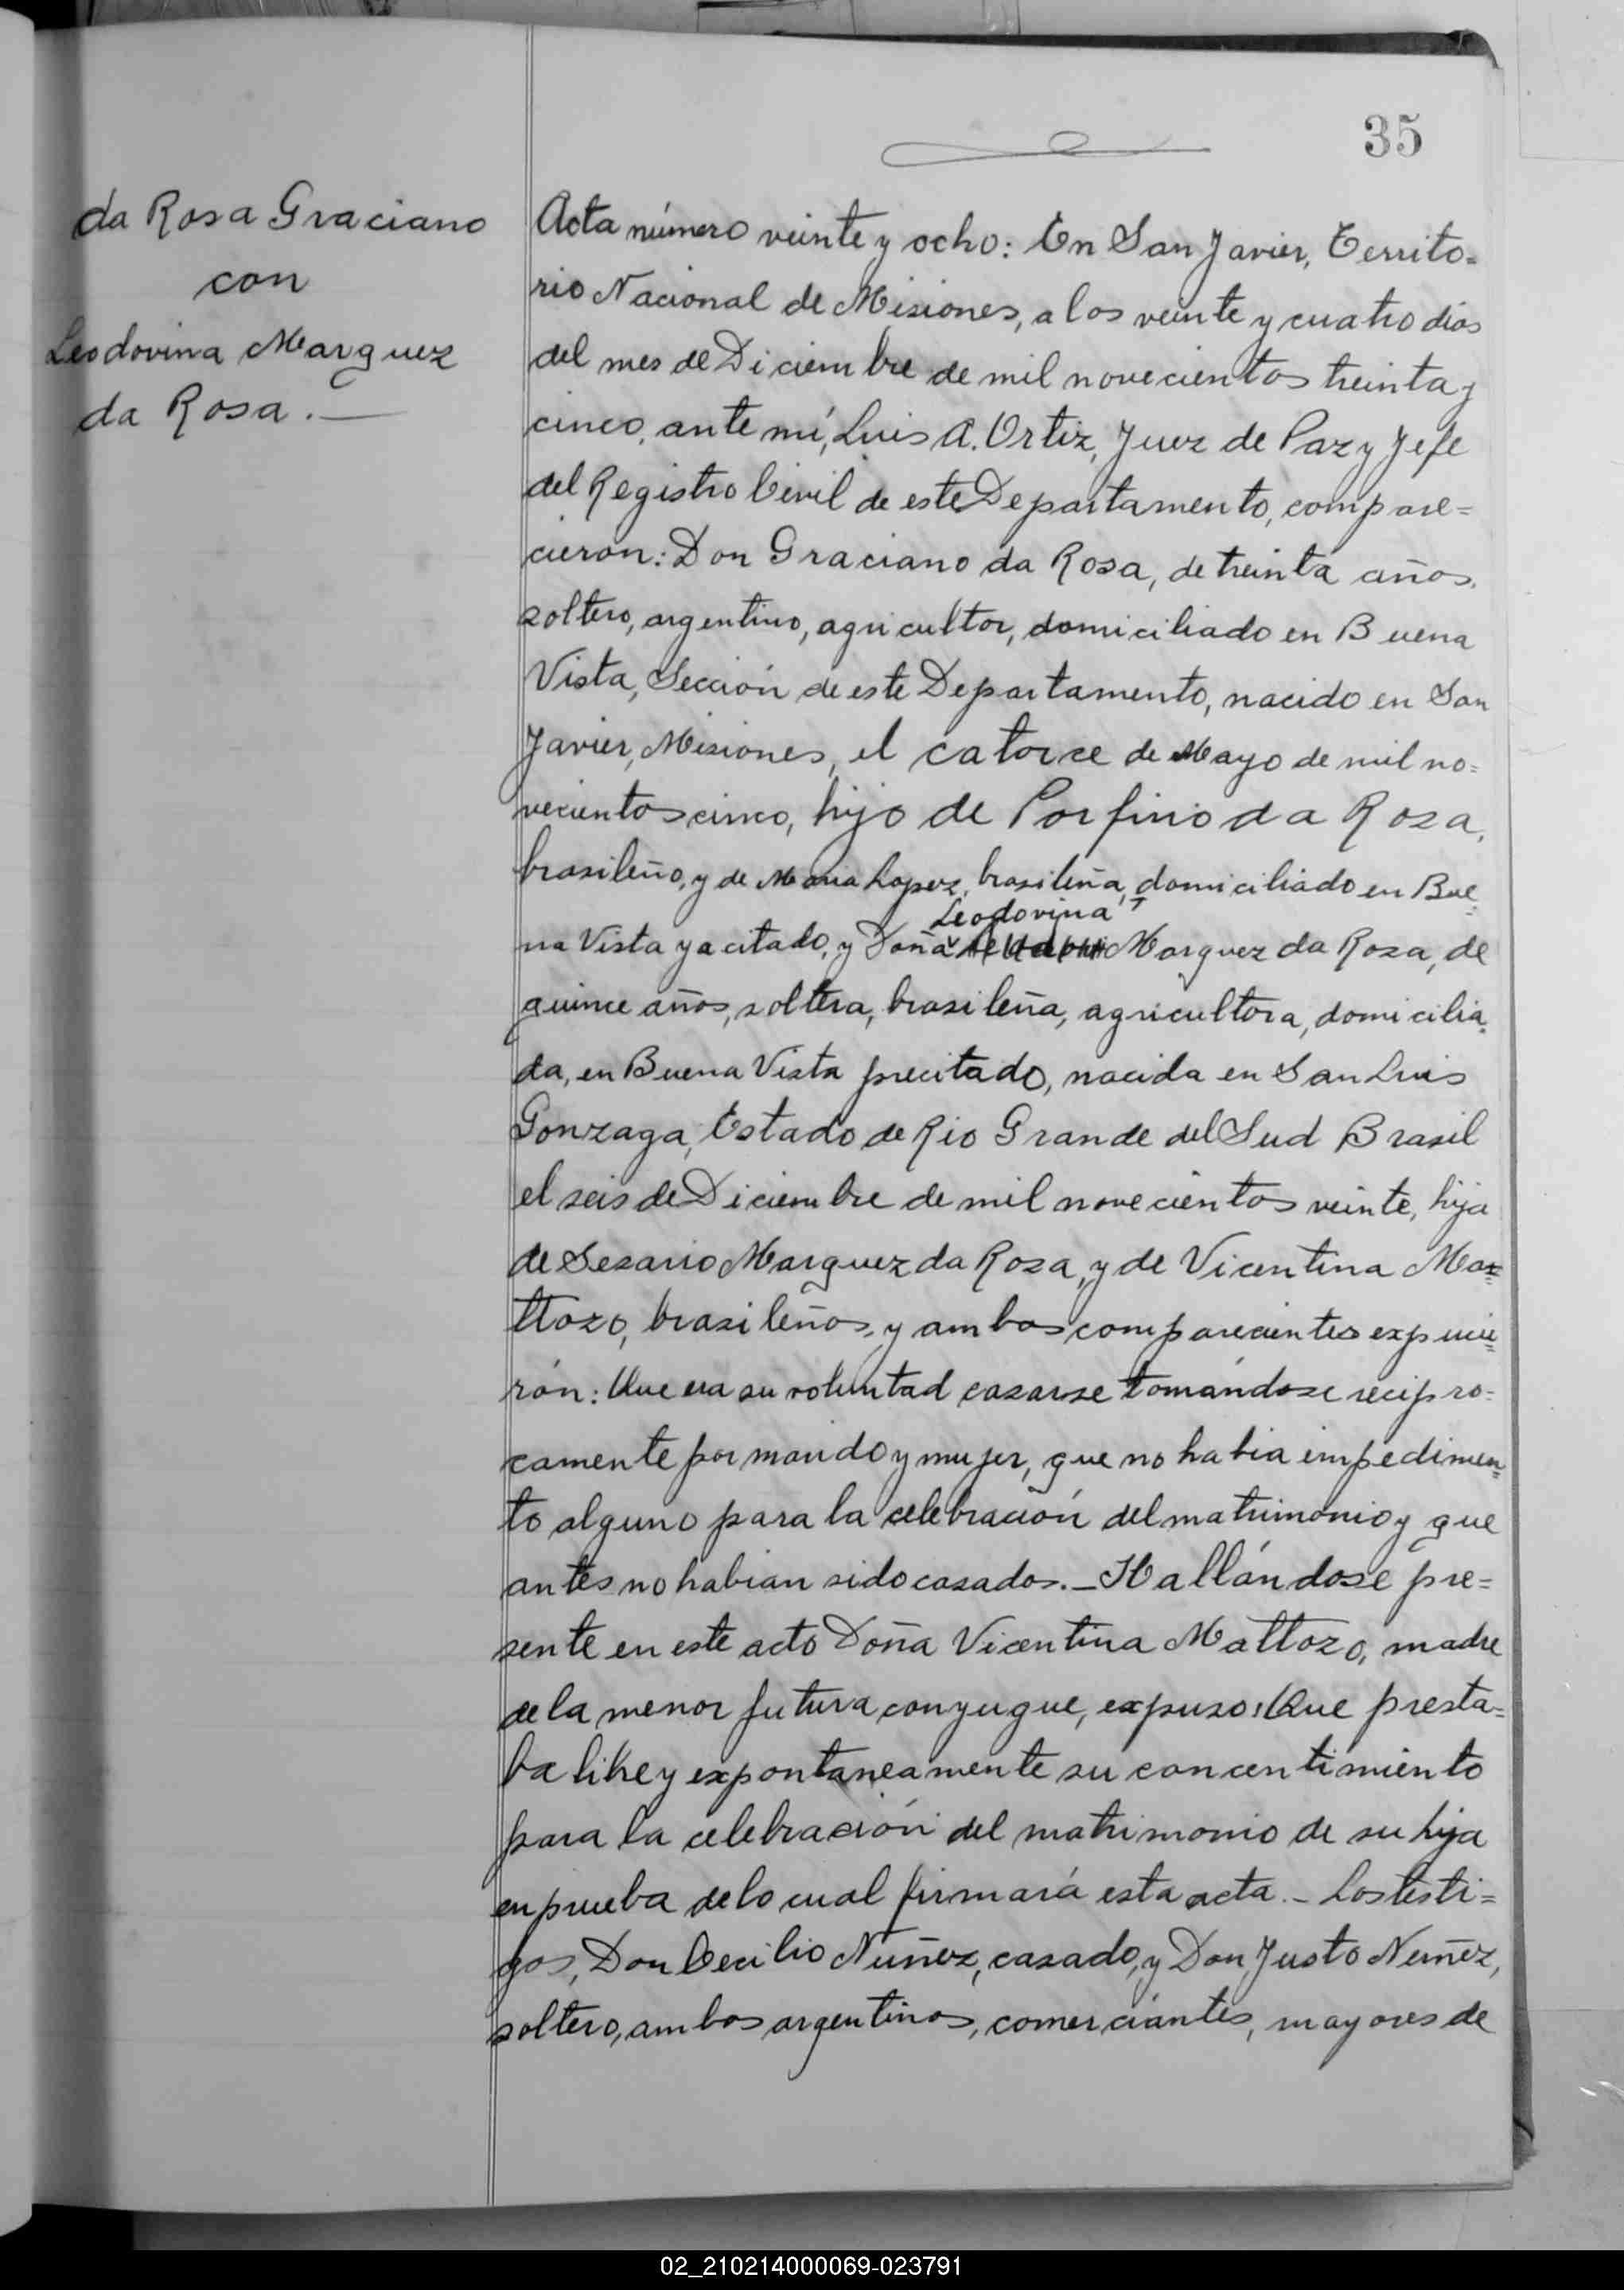 35
da Rosa Graciano
con
Leodovina Marguez
da Rosa.—
Acta número veinte y ocho: En San Javier, Territo=
rio Nacional de Misiones, a los veinte y cuatro dias
del mes de Diciembre de mil novecientos treinta y
cinco, ante mí, Luis A. Ortiz, Juez de Paz y Jefe
del Registro Civil de este Departamento, compare=
cieron: Don Graciano da Rosa, de treinta años,
soltero, argentino, agricultor, domiciliado en Buena
Vista, Sección de este Departamento, nacido en San
Javier, Misiones, el catorce de Mayo de mil no=
vecientos cinco, hijo de Porfirio da Rosa,
brasileño, y de Maria Lopez, brasileña, domiciliado en Bue=
Leodovina
na Vista ya citado, y Doña Marguez da Rosa, de
quince años, soltera, brasileña, agricultora, domicilia=
da, en Buena Vista precitado, nacida en San Luis
Gonzaga, Estado de Rio Grande del Sud Brasil
el seis de Diciembre de mil novecientos veinte, hija
de Sesario Marguez da Rosa, y de Vicentina Ma=
ttozo, brasileños, y ambos comparecientes expucie=
rón: Que era su voluntad casarse tomándose recipro=
camente por marido y mujer, que no habia impedimen=
to alguno para la celebración del matrimonio y que
antes no habian sido casados.—Hallándose pre=
sente en este acto Doña Vicentina Mattozo, madre
de la menor futura conyugue, expuso: Que presta=
ba libre y expontaneamente su concentimiento
para la celebración del matrimonio de su hija
en prueba de lo cual firmará esta acta.— Los testi=
gos, Don Cecilio Nuñez, casado, y Don Justo Nuñez,
soltero, ambos argentinos, comerciantes, mayores de
02_210214000069-023791